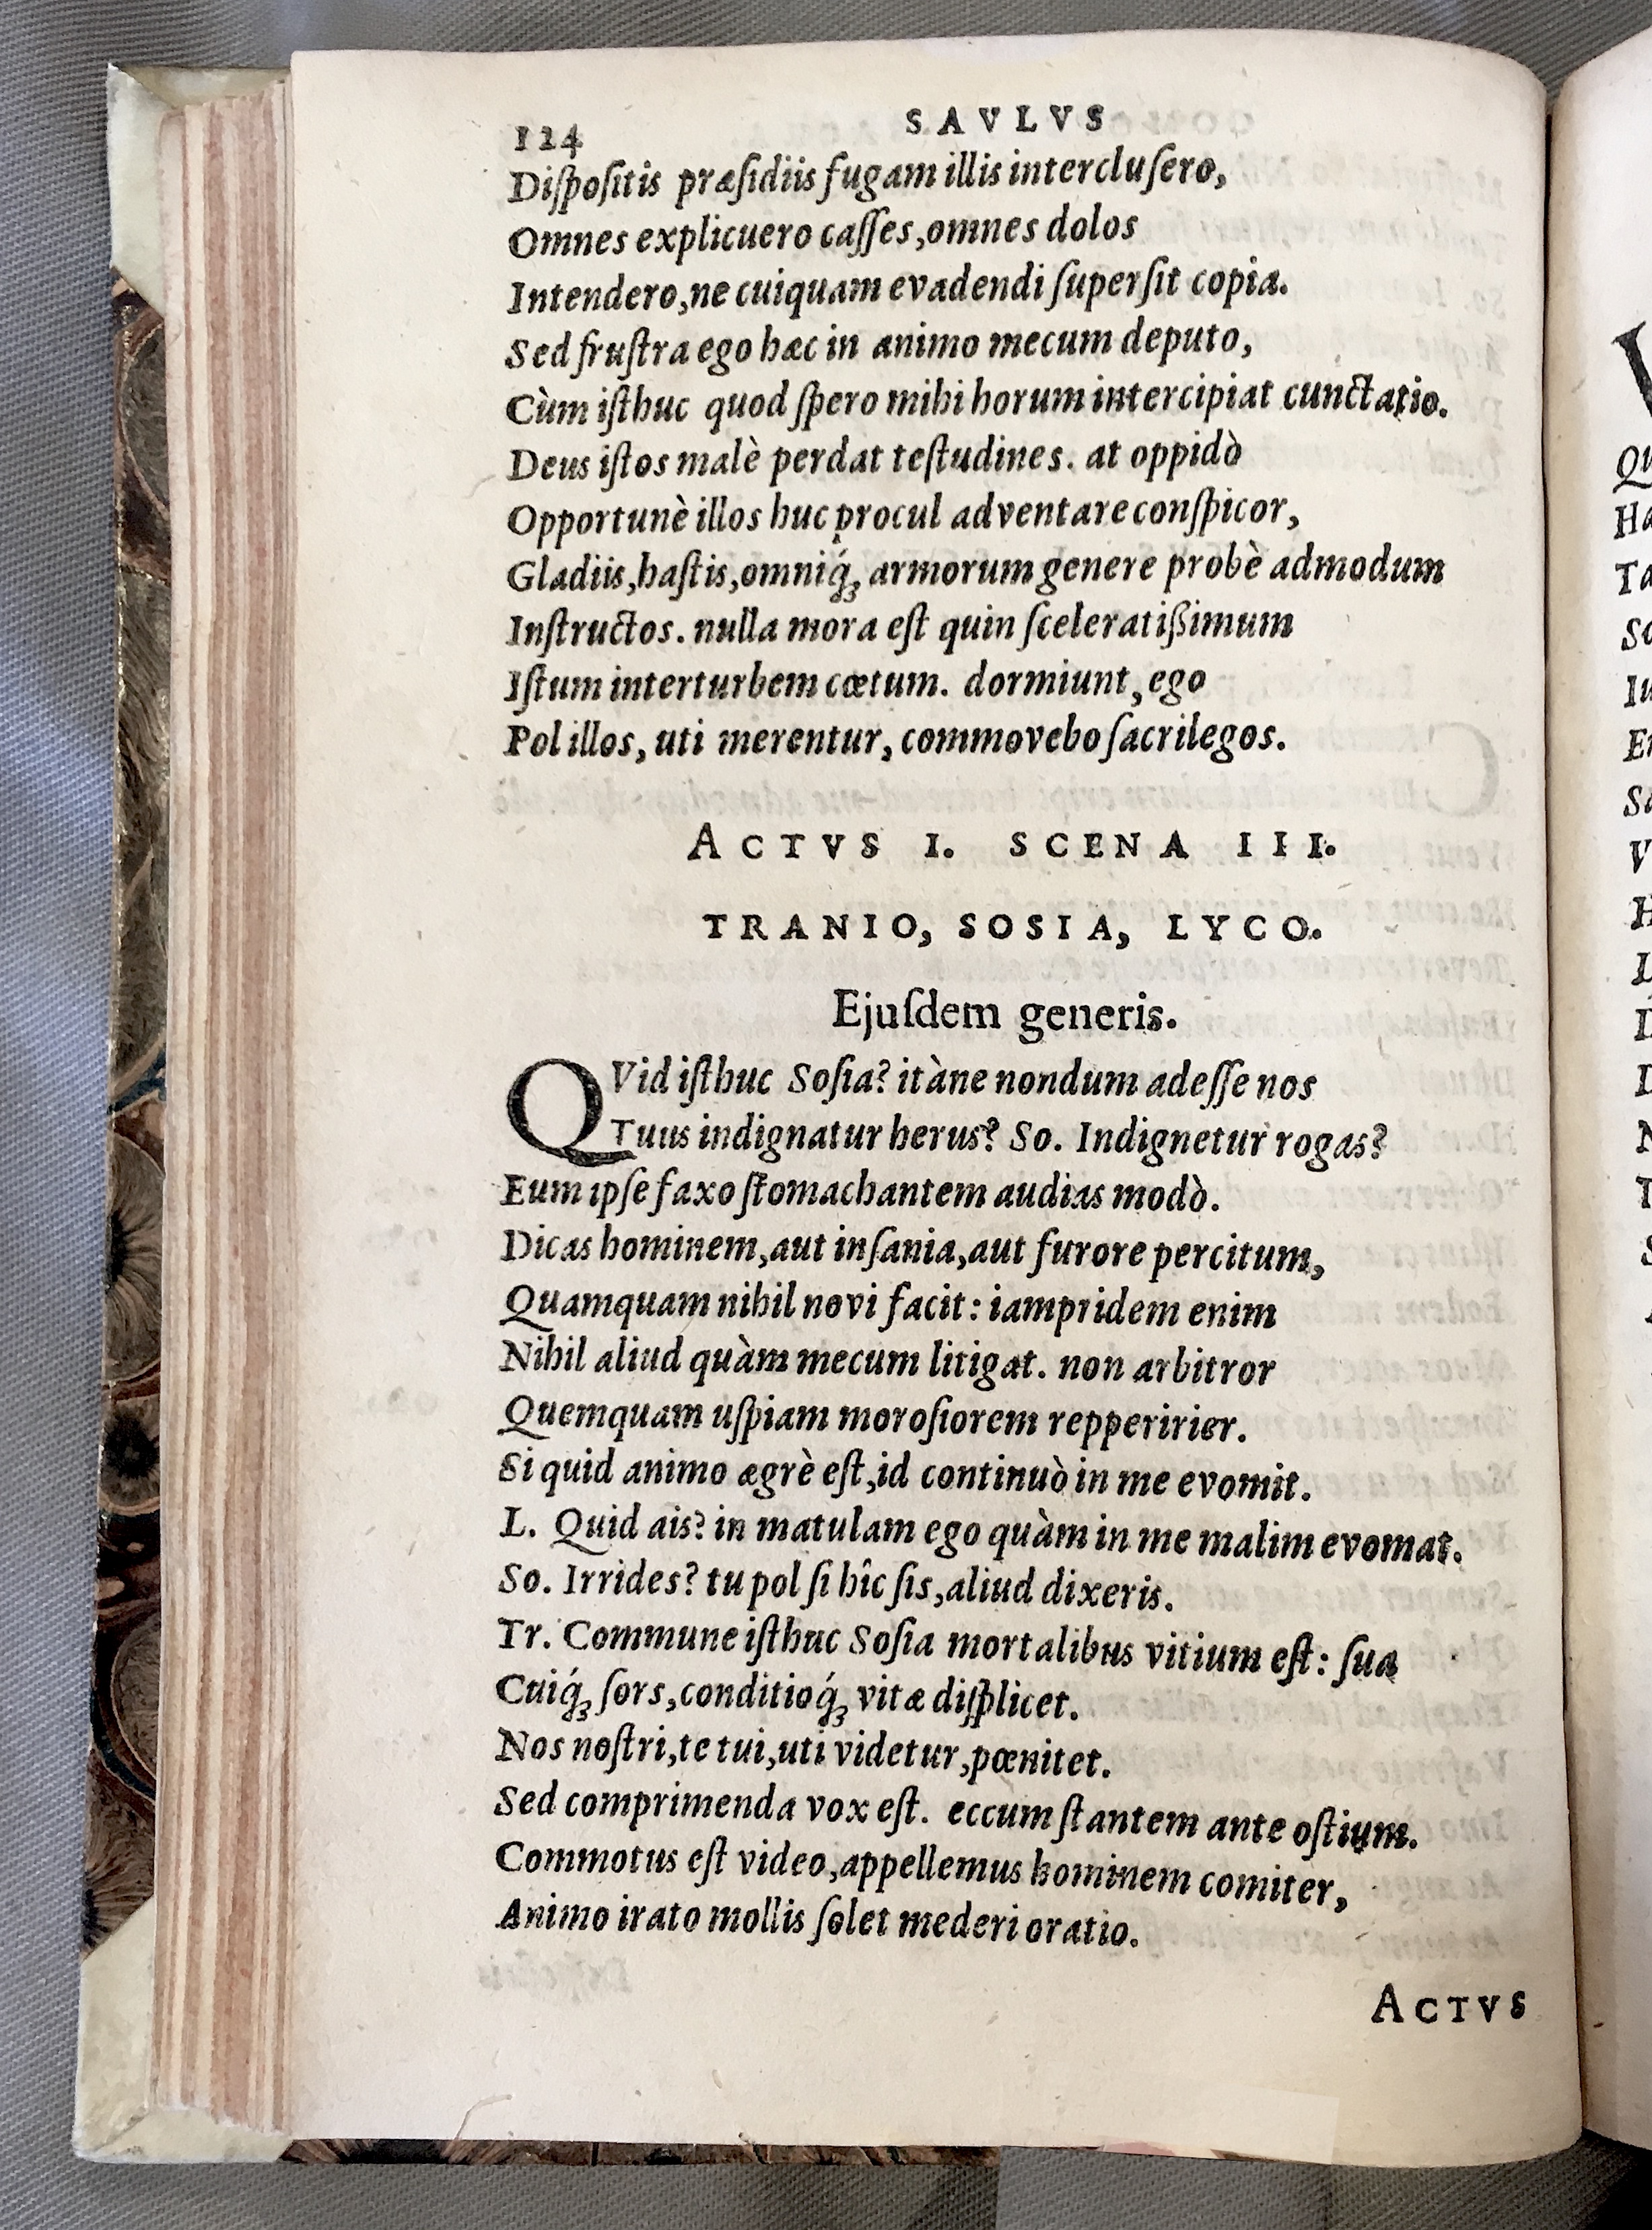 124 SAVLVS
Diſpoſitis præſidiis fugam illis intercluſero,
Omnes explicuero caſſes, omnes dolos
Intendero, ne cuiquam evadendi ſuperſit copia.
Sed fruſtra ego hæc in animo mecum deputo,
Cùm iſthuc quod ſpero mihi horum intercipiat cunctatio.
Deus iſtos malè perdat teſtudines. at oppidò
Opportunè illos huc procul adventare conſpicor,
Gladiis, haſtis, omniq́ꝫ armorum genere probè admodum
Inſtructos. nulla mora eſt quin ſceleratißimum
Iſtum interturbem cœtum. dormiunt, ego
Pol illos, uti merentur, commovebo ſacrilegos.
ACTVS I. SCENA III.
TRANIO, SOSIA, LYCO.
Ejuſdem generis.
QVid iſthuc Soſia? itàne nondum adeſſe nos
Tuus indignatur herus? So. Indignetur rogas?
Eum ipſe faxo ſtomachantem audias modò.
Dicas hominem, aut inſania, aut furore percitum,
Quamquam nihil novi facit: iampridem enim
Nihil aliud quàm mecum litigat. non arbitror
Quemquam uſpiam moroſiorem repperirier.
Si quid animo ægrè eſt, id continuò in me evomit.
L. Quid ais? in matulam ego quàm in me malim evomat.
So. Irrides? tu pol ſi hîc ſis, aliud dixeris.
Tr. Commune iſthuc Soſia mortalibus vitium eſt: ſua
Cuiq́ꝫ ſors, conditioq́ꝫ vitæ diſplicet.
Nos noſtri, te tui, uti videtur, pœnitet.
Sed comprimenda vox eſt. eccum ſtantem ante oſtium.
Commotus eſt video, appellemus hominem comiter,
Animo irato mollis ſolet mederi oratio.
ACTVS